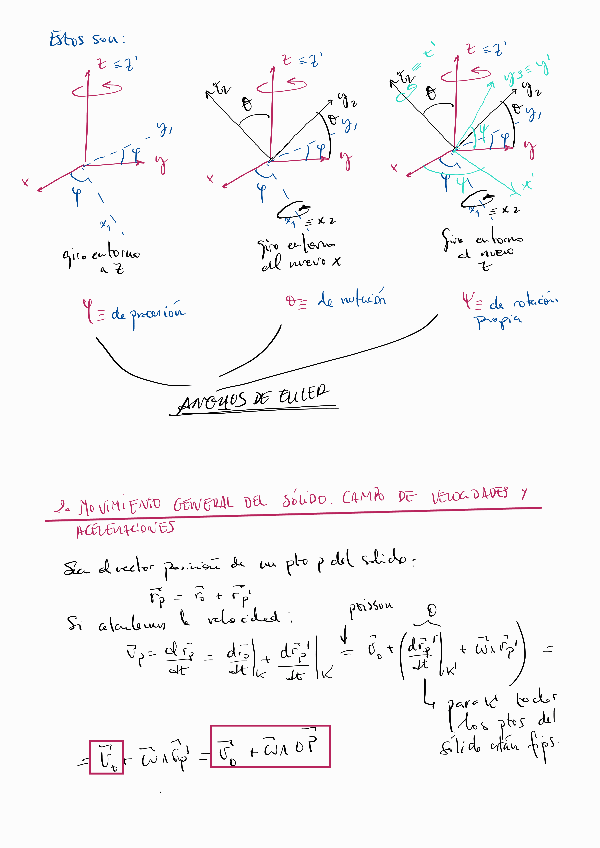 Estos son:
z ≡ z'
y₁
y
x
φ
φ
x₁
giro entorno
a z
z ≡ z'
z₂
θ
y₂
θ y₁
y
x
φ
φ
x₁ ≡ x₂
giro entorno
al nuevo x
z ≡ z'
z₂ ≡ z'
θ
y₃ ≡ y'
y₂
θ y₁
ψ
φ
y
x
φ ψ
x'
x₁ ≡ x₂
giro entorno
al nuevo
z
φ ≡ de precesión
θ ≡ de nutación
ψ ≡ de rotación
propia
ANGULOS DE EULER
2. MOVIMIENTO GENERAL DEL SÓLIDO. CAMPO DE VELOCIDADES Y
ACELERACIONES
Sea el vector posición de un pto p del sólido:
r⃗p = r⃗o + r⃗p'
Si calculamos la velocidad: poisson 0
v⃗p = dr⃗p/dt = dr⃗o/dt|K + dr⃗p'/dt|K = v⃗o + (dr⃗p'/dt|K' + ω⃗ ∧ r⃗p') =
para K' todos
los ptos del
sólido están fijos.
= v⃗o + ω⃗ ∧ r⃗p' = v⃗o + ω⃗ ∧ OP⃗